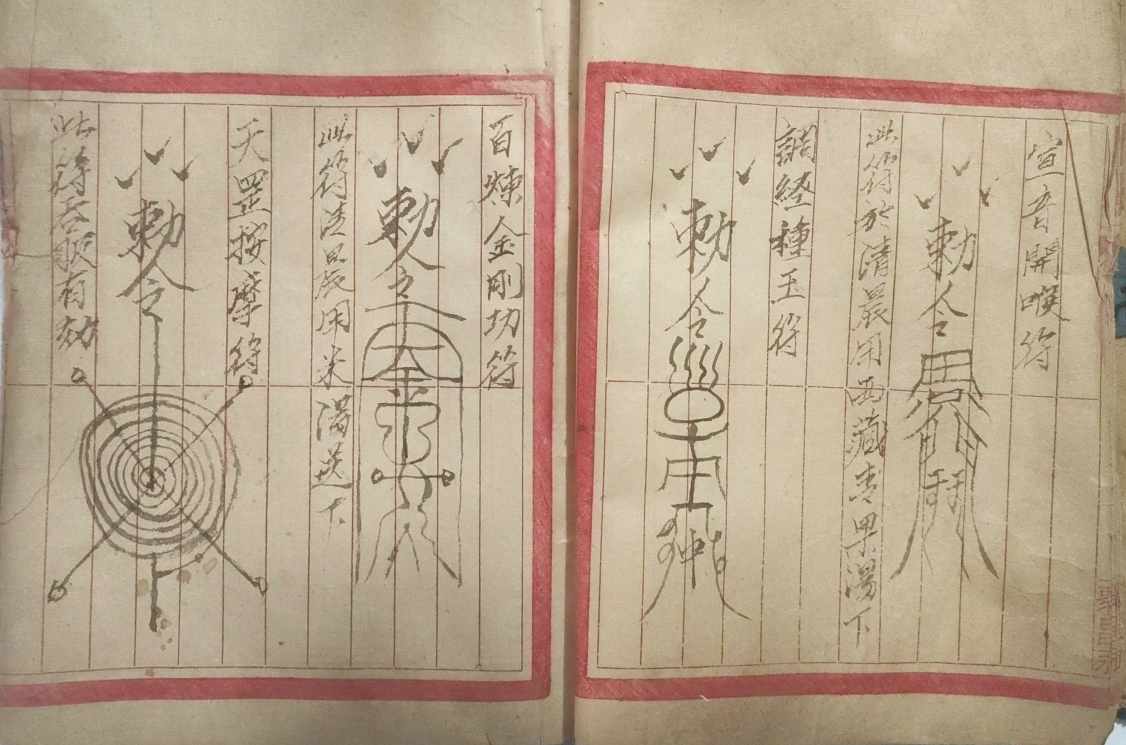 宣音開喉符
勅令
此符於清晨用西藏青果湯下
調經種玉符
勅令
百煉金剛功符
勅令
此符清晨用米湯送下
天罡按摩符
勅令
此符吞服有効